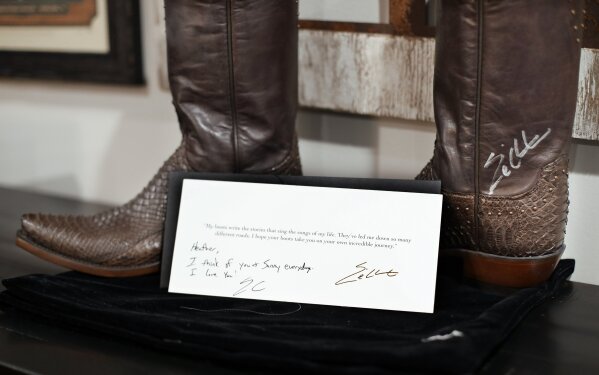 "My boots write the stories that sing the songs of my life. They've led me down so many
different roads. I hope your boots take you on your own incredible journey."
Heather,
I think of you & Sunny everyday.
I Love You!